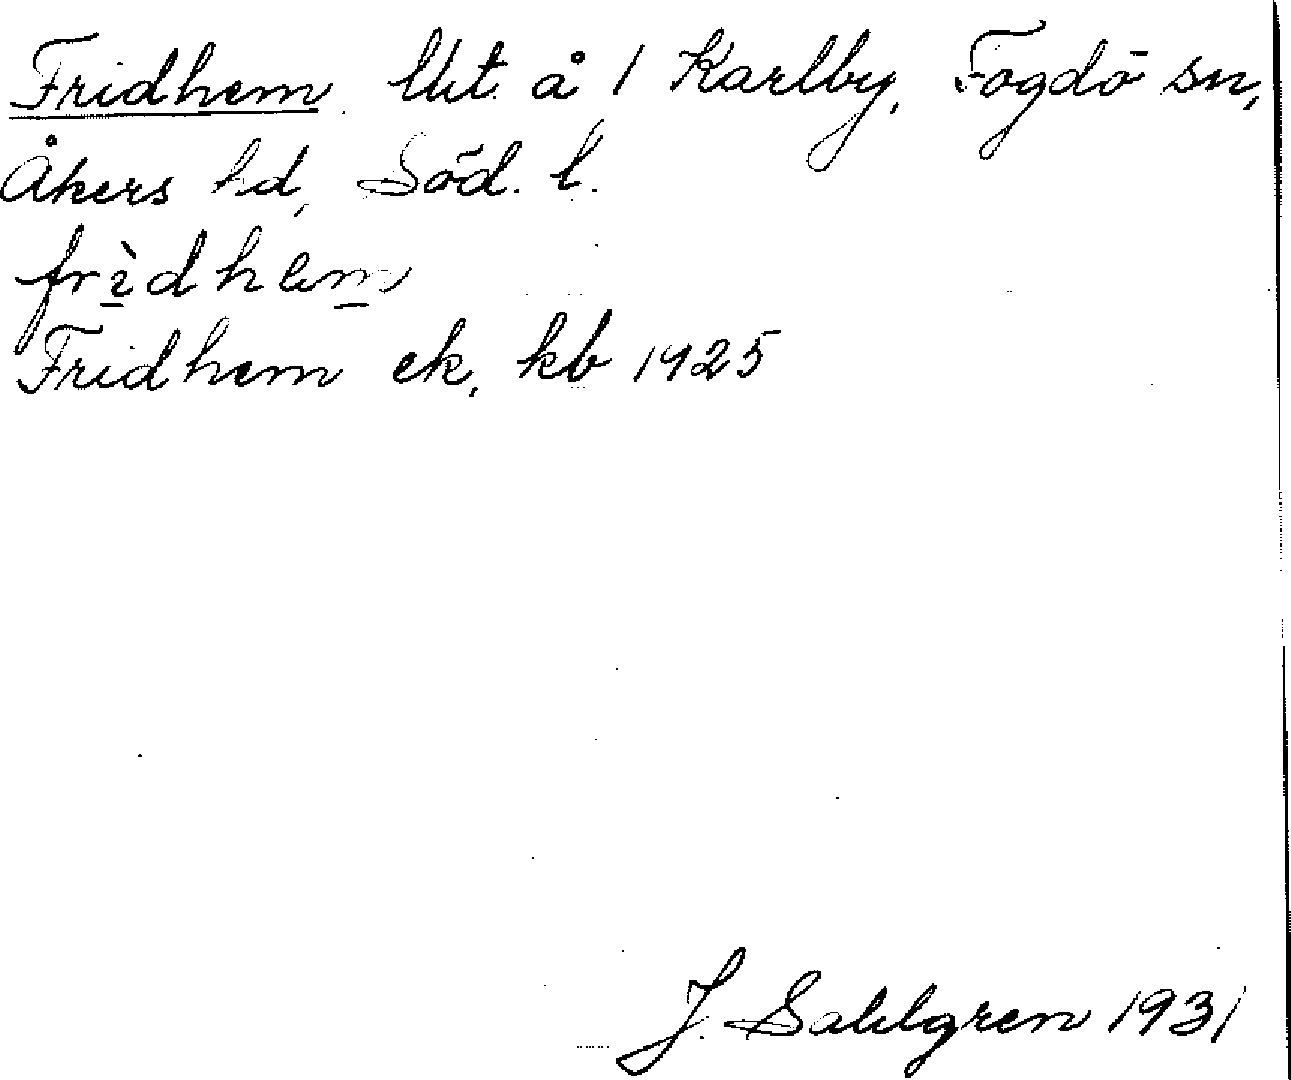 Fridhem lht. å 1 Karlby, Fogdö sn,
Åkers hd, Söd. l.
frìdhem
Fridhem ek, kb 1925
J. Sahlgren 1931